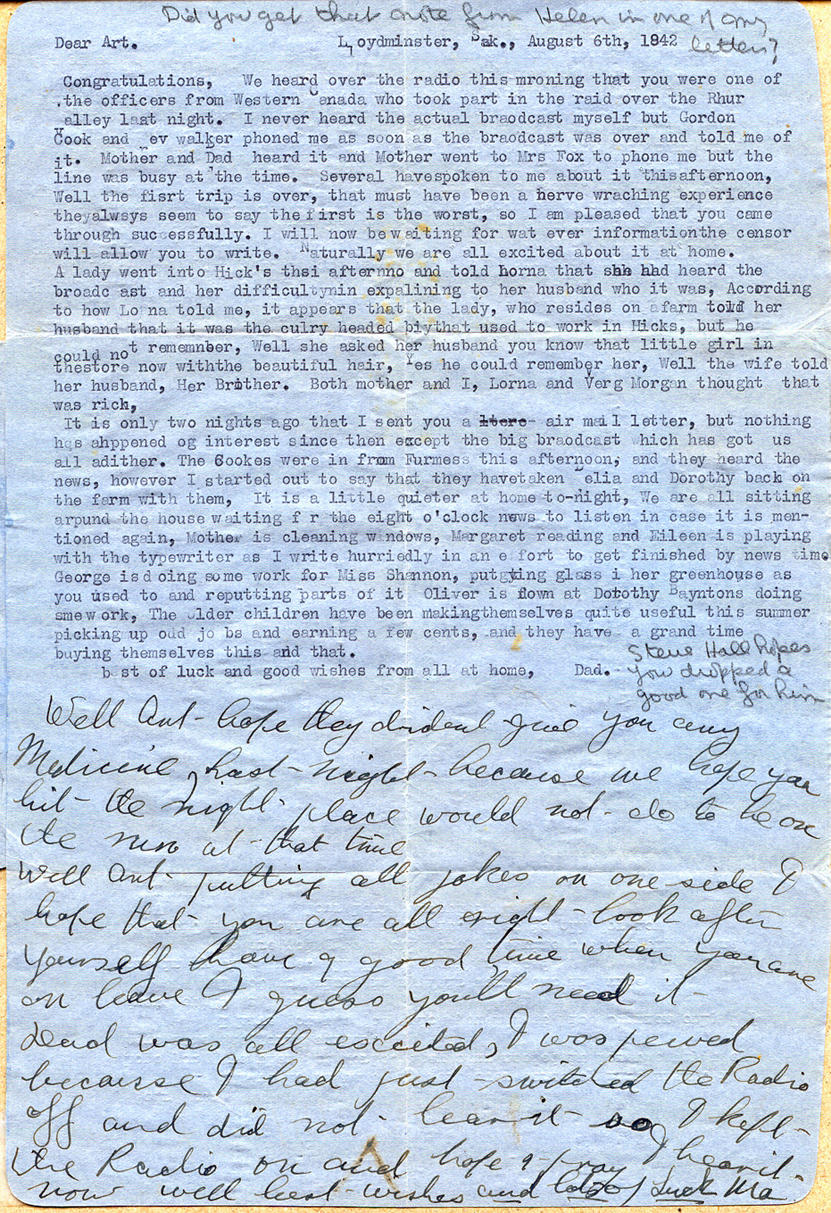 Did you get that note from Helen in one of my
letters?
Dear Art. Lloydminster, Sak., August 6th, 1942
Congratulations, We heard over the radio this mroning that you were one of
.the officers from Western Canada who took part in the raid over the Rhur
alley last night. I never heard the actual braodcast myself but Gordon
Cook and ev walker phoned me as soon as the braodcast was over and told me of
it. Mother and Dad heard it and Mother went to Mrs Fox to phone me but the
line was busy at the time. Several havespoken to me about it thisafternoon,
Well the fisrt trip is over, that must have been a nerve wraching experience
theyalwsys seem to say the first is the worst, so I am pleased that you came
through successfully. I will now be waiting for wat ever informationthe censor
will allow you to write. Naturally we are all excited about it at home.
A lady went into Hick's thsi afternno and told Lorna that she had heard the
broadc ast and her difficultynin expalining to her husband who it was, According
to how Lorna told me, it appears that the lady, who resides on afarm told her
husband that it was the culry headed biythat used to work in Hicks, but he
could not rememnber, Well she asked her husband you know that little girl in
thestore now withthe beautiful hair, Yes he could remember her, Well the wife told
her husband, Her Brother. Both mother and I, Lorna and Verg Morgan thought that
was rich,
It is only two nights ago that I sent you a air mail letter, but nothing
has ahppened og interest since then except the big braodcast which has got us
all adither. The Cookes were in from Furmess this afternoon, and they heard the
news, however I started out to say that they havetaken elia and Dorothy back on
the farm with them, It is a little quieter at home to-night, We are all sitting
arpund the house waiting f r the eight o'clock news to listen in case it is men-
tioned again, Mother is cleaning windows, Margaret reading and Eileen is playing
with the typewriter as I write hurriedly in an e fort to get finished by news time
George isd oing some work for Miss Shannon, putgting glass i her greenhouse as
you used to and reputting parts of it Oliver is down at Dotothy Bayntons doing
smework, The older children have been makingthemselves quite useful this summer
picking up odd jo bs and earning a few cents, and they have a grand time
buying themselves this and that.
best of luck and good wishes from all at home, Dad.
Steve Hall hopes
you dropped a
good one for him
Well Art - hope they dident give you any
Medicine, last - night - because we hope you
hit - the right - place would not - do to be on
the run at - that time
Well Art - putting all jokes on one side I
hope that - you are all right - look after
yourself have a good time when you are
on leave I guess you'll need it -
Dead was all excited, I was peived
because I had just - switched the Radio
off and did not - hear it - so I kept -
the Radio on and hope & pray I hear it -
now well best - wishes and lots of Luck Ma